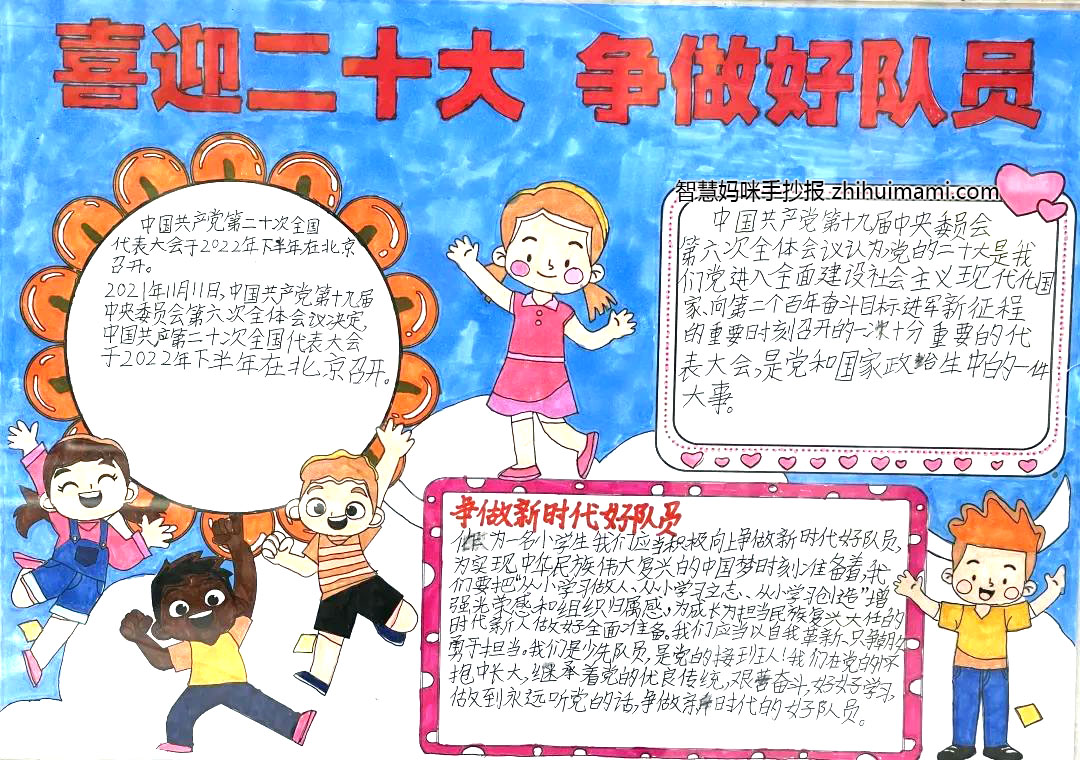 喜迎二十大 争做好队员
中国共产党第二十次全国
代表大会于2022年下半年在北京
召开。
2021年11月11日,中国共产党第十九届
中央委员会第六次全体会议决定,
中国共产党第二十次全国代表大会
于2022年下半年在北京召开。
智慧妈咪手抄报 zhihuimami.com
中国共产党第十九届中央委员会
第六次全体会议认为,党的二十大是我
们党进入全面建设社会主义现代化国
家、向第二个百年奋斗目标进军新征程
的重要时刻召开的一次十分重要的代
表大会,是党和国家政治生中的一件
大事。
争做新时代好队员
作为一名小学生我们应当积极向上争做新时代好队员,
为实现中华民族伟大复兴的中国梦时刻准备着,我
们要把“从小学习做人、从小学习立志、从小学习创造”增
强光荣感和组织归属感,为成长为担当民族复兴大任的
时代新人做好全面准备。我们应当以自我革新、只争朝夕
勇于担当。我们是少先队员,是党的接班人!我们在党的怀
抱中长大,继承着党的优良传统,艰苦奋斗,好好学习,
做到永远听党的话,争做新时代的好队员。